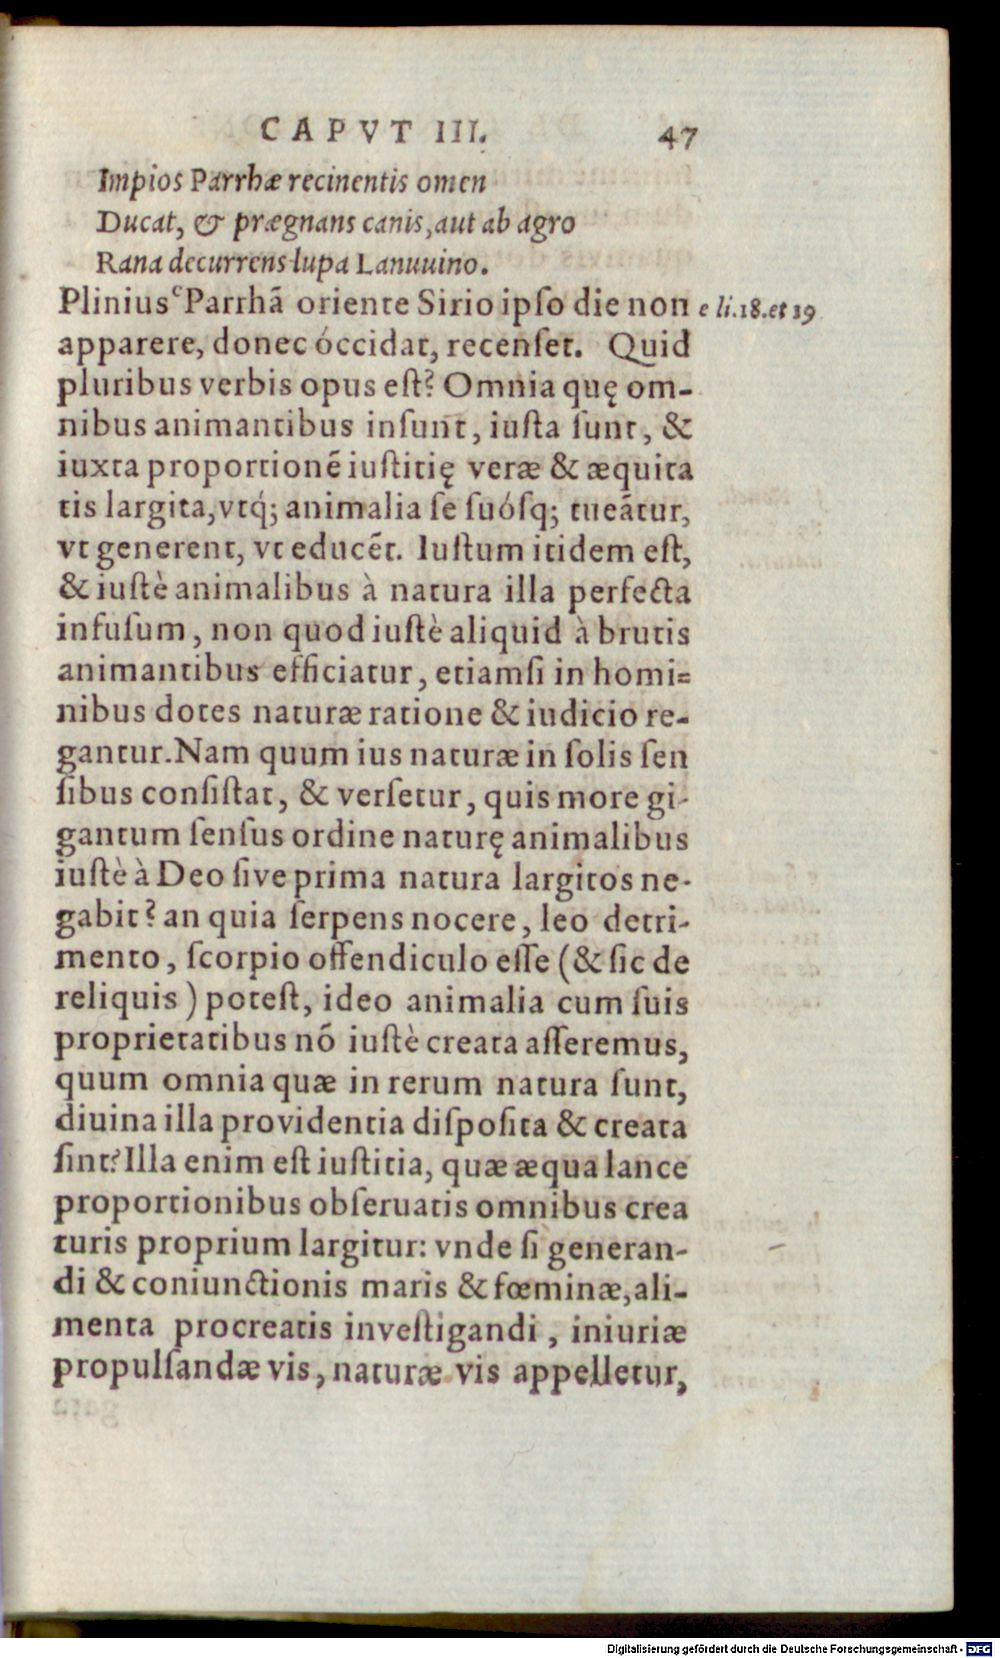 CAPVT III. 47
Impios Parrhæ recinentis omen
Ducat, & prægnans canis, aut ab agro
Rana decurrens lupa Lanuuino.
Plinius e Parrhā oriente Sirio ipſo die non e li.18.et 19
apparere, donec óccidat, recenſet. Quid
pluribus verbis opus eſt? Omnia quę om-
nibus animantibus inſunt, iuſta ſunt, &
iuxta proportionē iuſtitię veræ & æquita
tis largita, vtq́; animalia ſe ſuóſq; tueātur,
vt generent, vt educēt. Iuſtum itidem eſt,
& iuſtè animalibus à natura illa perfecta
infuſum, non quod iuſtè aliquid à brutis
animantibus efficiatur, etiamſi in homi=
nibus dotes naturæ ratione & iudicio re-
gantur. Nam quum ius naturæ in ſolis ſen
ſibus conſiſtat, & verſetur, quis more gi-
gantum ſenſus ordine naturę animalibus
iuſtè à Deo ſive prima natura largitos ne-
gabit? an quia ſerpens nocere, leo detri-
mento, ſcorpio offendiculo eſſe (& ſic de
reliquis) poteſt, ideo animalia cum ſuis
proprietatibus nō iuſtè creata aſſeremus,
quum omnia quæ in rerum natura ſunt,
diuina illa providentia diſpoſita & creata
ſint? Illa enim eſt iuſtitia, quæ æqua lance
proportionibus obſeruatis omnibus crea
turis proprium largitur: vnde ſi generan-
di & coniunctionis maris & fœminæ, ali-
menta procreatis inveſtigandi, iniuriæ
propulſandæ vis, naturæ vis appelletur,
Digitalisierung gefördert durch die Deutsche Forschungsgemeinschaft - DFG